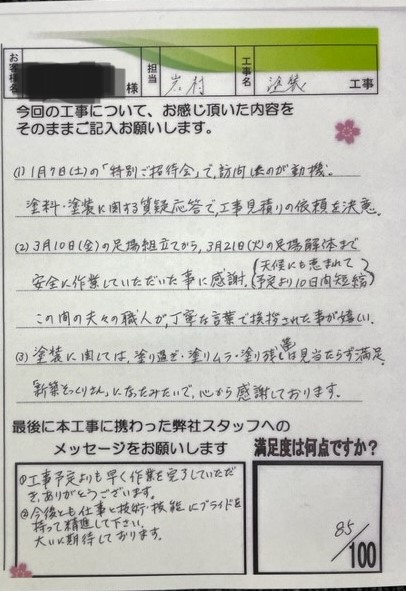 お客様名 様 担当 岩村 工事名 塗装 工事
今回の工事について、お感じ頂いた内容を
そのままご記入お願いします。
(1) 1月7日(土)の「特別ご招待会」で、訪問したのが動機。
塗料・塗装に関する質疑応答で、工事見積りの依頼を決意。
(2) 3月10日(金)の足場組立てから、3月21日(火)の足場解体まで
安全に作業していただいた事に感謝。(天候にも恵まれて
予定より10日間短縮)
この間の夫々の職人が、丁寧な言葉で挨拶された事が嬉しい。
(3) 塗装に関しては、塗り過ぎ・塗りムラ・塗り残し等は見当たらず満足。
「新築そっくりさん」になったみたいで、心から感謝しております。
最後に本工事に携わった弊社スタッフへの
メッセージをお願いします
①工事予定よりも早く作業を完了していただ
き、ありがとうございます。
②今後とも仕事と技術・技能にプライドを
持って精進して下さい。
大いに期待しております。
満足度は何点ですか?
85/100